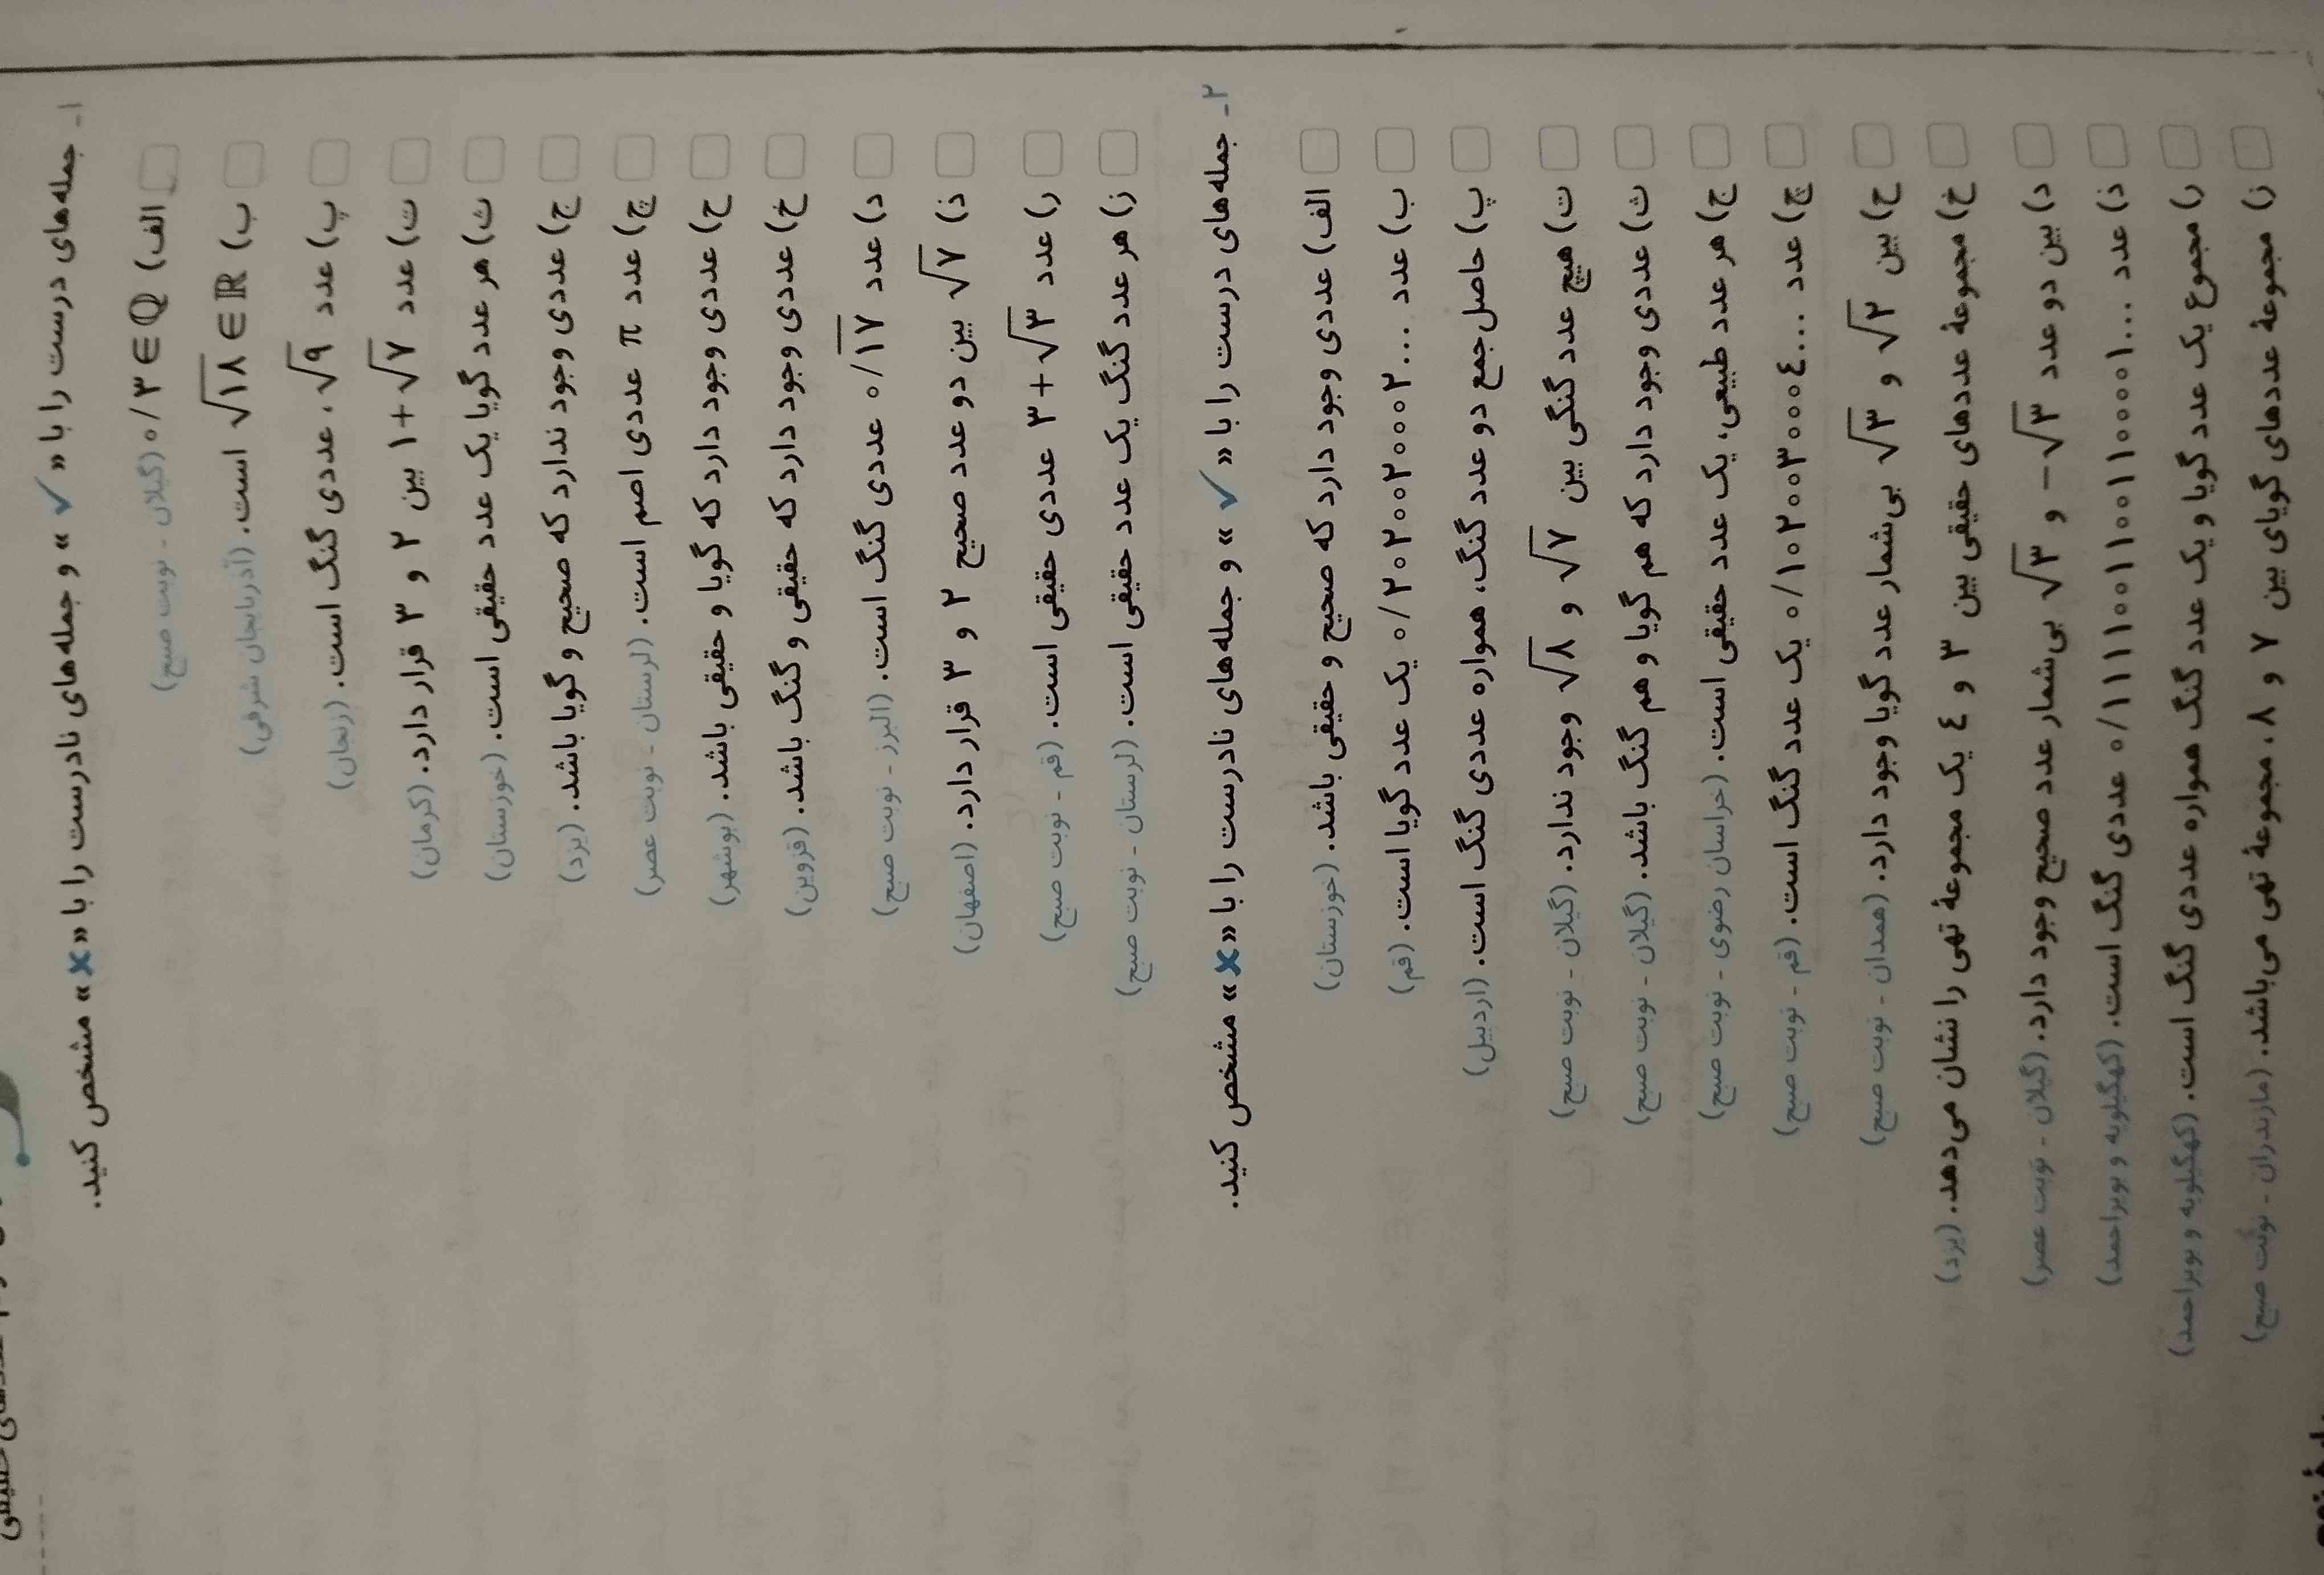 ۱- جمله‌های درست را با « ✓ » و جمله‌های نادرست را با « ✗ » مشخص کنید.
الف) ۰/۳ ∈ ℚ (گیلان - نوبت صبح)
ب) √۱۸ ∈ ℝ است. (آذربایجان شرقی)
پ) عدد √۹، عددی گنگ است. (زنجان)
ت) عدد ۱+√۷ بین ۲ و ۳ قرار دارد. (کرمان)
ث) هر عدد گویا یک عدد حقیقی است. (خوزستان)
ج) عددی وجود ندارد که صحیح و گویا باشد. (یزد)
چ) عدد π عددی اصم است. (لرستان - نوبت عصر)
ح) عددی وجود دارد که گویا و حقیقی باشد. (بوشهر)
خ) عددی وجود دارد که حقیقی و گنگ باشد. (قزوین)
د) عدد ۰/۱۷̅ عددی گنگ است. (البرز - نوبت صبح)
ذ) √۷ بین دو عدد صحیح ۲ و ۳ قرار دارد. (اصفهان)
ر) عدد ۳+√۳ عددی حقیقی است. (قم - نوبت صبح)
ز) هر عدد گنگ یک عدد حقیقی است. (لرستان - نوبت صبح)
۲- جمله‌های درست را با « ✓ » و جمله‌های نادرست را با « ✗ » مشخص کنید.
الف) عددی وجود دارد که صحیح و حقیقی باشد. (خوزستان)
ب) عدد ...۰/۲۰۲۰۰۲۰۰۰۲ یک عدد گویا است. (قم)
پ) حاصل جمع دو عدد گنگ، همواره عددی گنگ است. (اردبیل)
ت) هیچ عدد گنگی بین √۷ و √۸ وجود ندارد. (گیلان - نوبت صبح)
ث) عددی وجود دارد که هم گویا و هم گنگ باشد. (گیلان - نوبت صبح)
ج) هر عدد طبیعی، یک عدد حقیقی است. (خراسان رضوی - نوبت صبح)
چ) عدد ...۰/۱۰۲۰۰۳۰۰۰۴ یک عدد گنگ است. (قم - نوبت صبح)
ح) بین √۲ و √۳ بی‌شمار عدد گویا وجود دارد. (همدان - نوبت صبح)
خ) مجموعهٔ عددهای حقیقی بین ۳ و ۴ یک مجموعهٔ تهی را نشان می‌دهد. (یزد)
د) بین دو عدد √۳− و √۳ بی‌شمار عدد صحیح وجود دارد. (گیلان - نوبت عصر)
ذ) عدد ...۰/۱۱۱۱۰۰۱۱۰۰۱۱۰۰۰۰۱ عددی گنگ است. (کهگیلویه و بویراحمد)
ر) مجموع یک عدد گویا و یک عدد گنگ همواره عددی گنگ است. (کهگیلویه و بویراحمد)
ز) مجموعهٔ عددهای گویای بین ۷ و ۸، مجموعهٔ تهی می‌باشد. (مازندران - نوبت صبح)